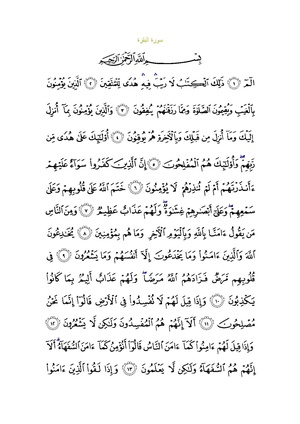 سورة البقرة
بِسْمِ اللَّهِ الرَّحْمَٰنِ الرَّحِيمِ
الٓمٓ ۝١ ذَٰلِكَ الْكِتَٰبُ لَا رَيْبَ ۛ فِيهِ ۛ هُدًى لِّلْمُتَّقِينَ ۝٢ الَّذِينَ يُؤْمِنُونَ
بِالْغَيْبِ وَيُقِيمُونَ الصَّلَوٰةَ وَمِمَّا رَزَقْنَٰهُمْ يُنفِقُونَ ۝٣ وَالَّذِينَ يُؤْمِنُونَ بِمَآ أُنزِلَ
إِلَيْكَ وَمَآ أُنزِلَ مِن قَبْلِكَ وَبِالْءَاخِرَةِ هُمْ يُوقِنُونَ ۝٤ أُو۟لَٰٓئِكَ عَلَىٰ هُدًى مِّن
رَّبِّهِمْ ۖ وَأُو۟لَٰٓئِكَ هُمُ الْمُفْلِحُونَ ۝٥ إِنَّ الَّذِينَ كَفَرُوا۟ سَوَآءٌ عَلَيْهِمْ
ءَأَنذَرْتَهُمْ أَمْ لَمْ تُنذِرْهُمْ لَا يُؤْمِنُونَ ۝٦ خَتَمَ اللَّهُ عَلَىٰ قُلُوبِهِمْ وَعَلَىٰ
سَمْعِهِمْ ۖ وَعَلَىٰٓ أَبْصَٰرِهِمْ غِشَٰوَةٌ ۖ وَلَهُمْ عَذَابٌ عَظِيمٌ ۝٧ وَمِنَ النَّاسِ
مَن يَقُولُ ءَامَنَّا بِاللَّهِ وَبِالْيَوْمِ الْءَاخِرِ وَمَا هُم بِمُؤْمِنِينَ ۝٨ يُخَٰدِعُونَ
اللَّهَ وَالَّذِينَ ءَامَنُوا۟ وَمَا يَخْدَعُونَ إِلَّآ أَنفُسَهُمْ وَمَا يَشْعُرُونَ ۝٩ فِى
قُلُوبِهِم مَّرَضٌ فَزَادَهُمُ اللَّهُ مَرَضًا ۖ وَلَهُمْ عَذَابٌ أَلِيمٌۢ بِمَا كَانُوا۟
يَكْذِبُونَ ۝١٠ وَإِذَا قِيلَ لَهُمْ لَا تُفْسِدُوا۟ فِى الْأَرْضِ قَالُوٓا۟ إِنَّمَا نَحْنُ
مُصْلِحُونَ ۝١١ أَلَآ إِنَّهُمْ هُمُ الْمُفْسِدُونَ وَلَٰكِن لَّا يَشْعُرُونَ ۝١٢
وَإِذَا قِيلَ لَهُمْ ءَامِنُوا۟ كَمَآ ءَامَنَ النَّاسُ قَالُوٓا۟ أَنُؤْمِنُ كَمَآ ءَامَنَ السُّفَهَآءُ ۗ أَلَآ
إِنَّهُمْ هُمُ السُّفَهَآءُ وَلَٰكِن لَّا يَعْلَمُونَ ۝١٣ وَإِذَا لَقُوا۟ الَّذِينَ ءَامَنُوا۟